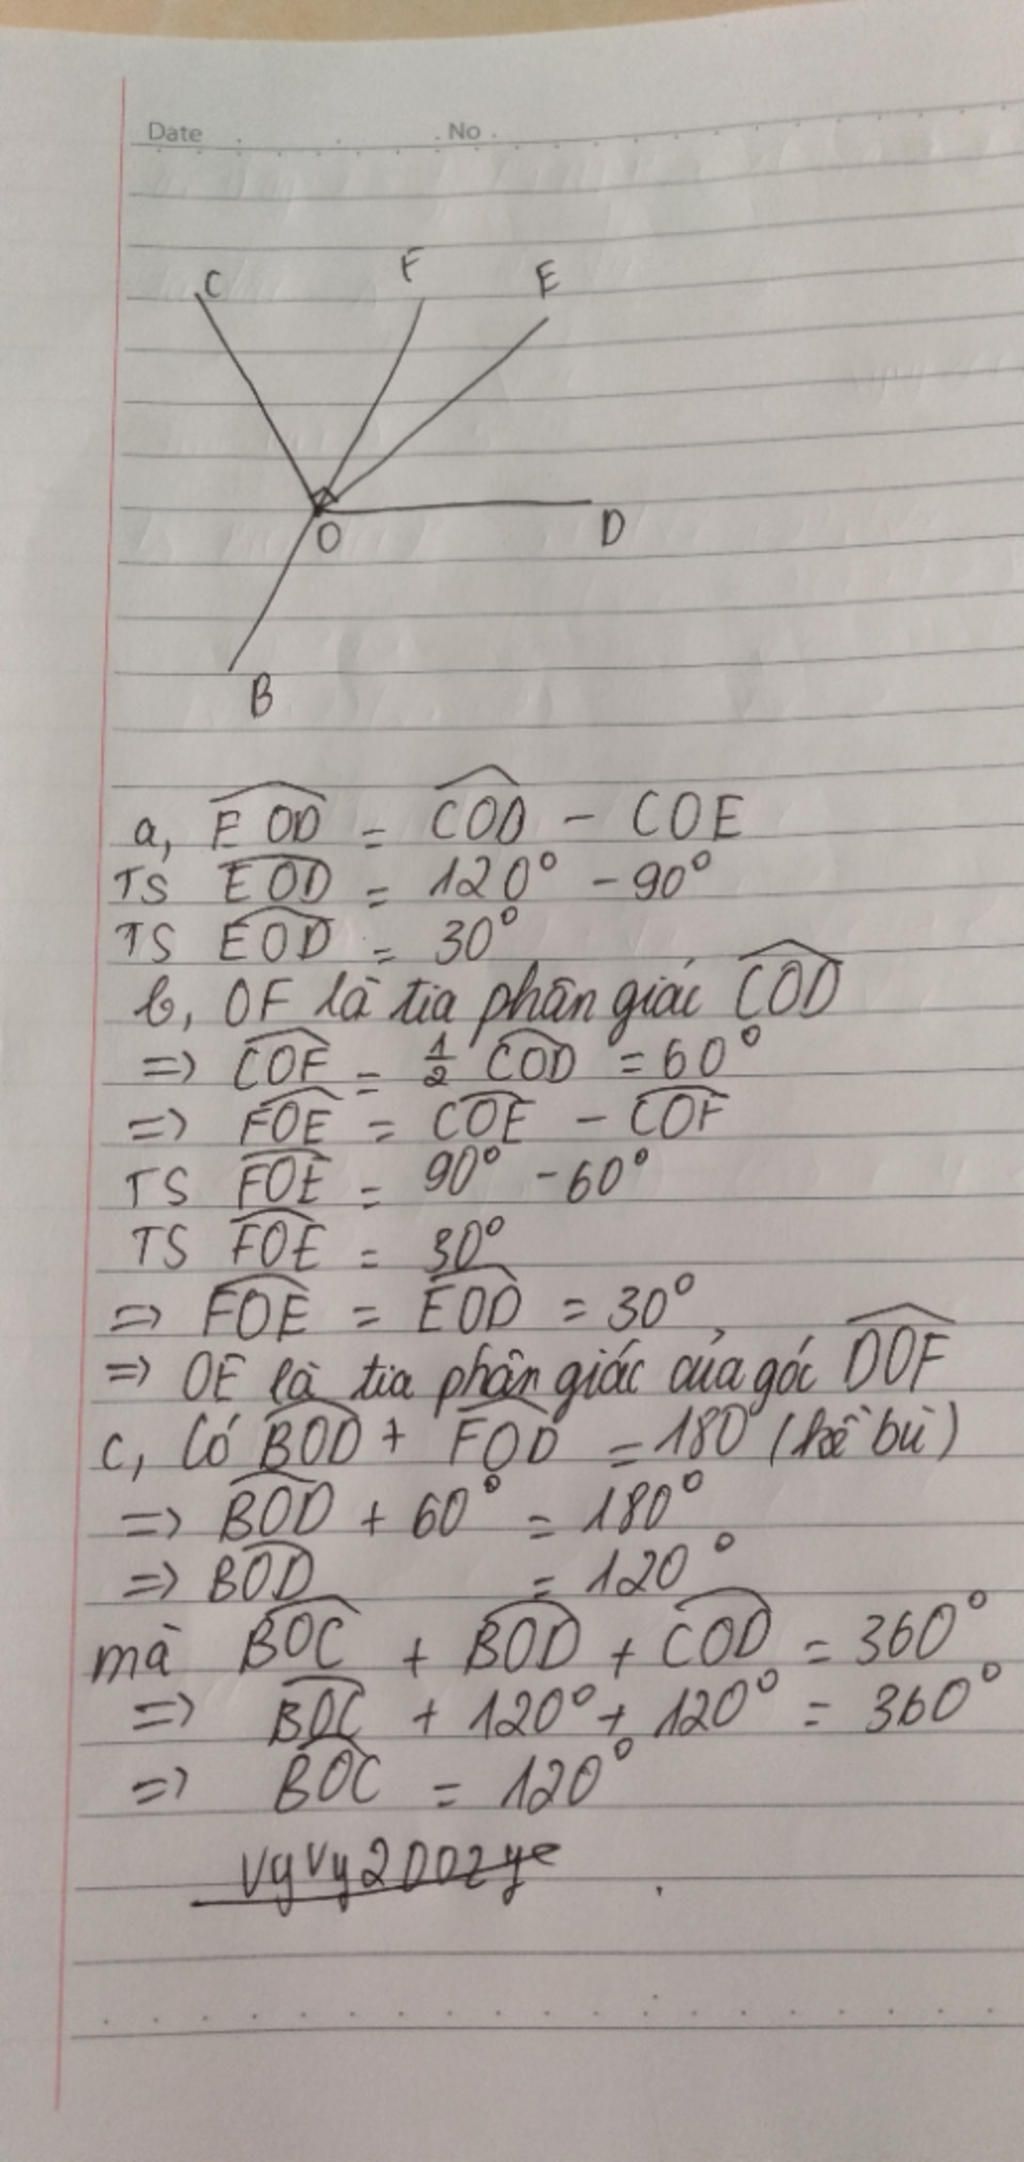 Date No
C F E
O D
B
a, EOD = COD - COE
TS EOD = 120° - 90°
TS EOD = 30°
b, OF là tia phân giác COD
=> COF = 1/2 COD = 60°
=> FOE = COE - COF
TS FOE = 90° - 60°
TS FOE = 30°
=> FOE = EOD = 30°,
=> OE là tia phân giác của góc DOF
c, Có BOD + FOD = 180° (kề bù)
=> BOD + 60° = 180°
=> BOD = 120°
mà BOC + BOD + COD = 360°
=> BOC + 120° + 120° = 360°
=> BOC = 120°
vyvy2002ye